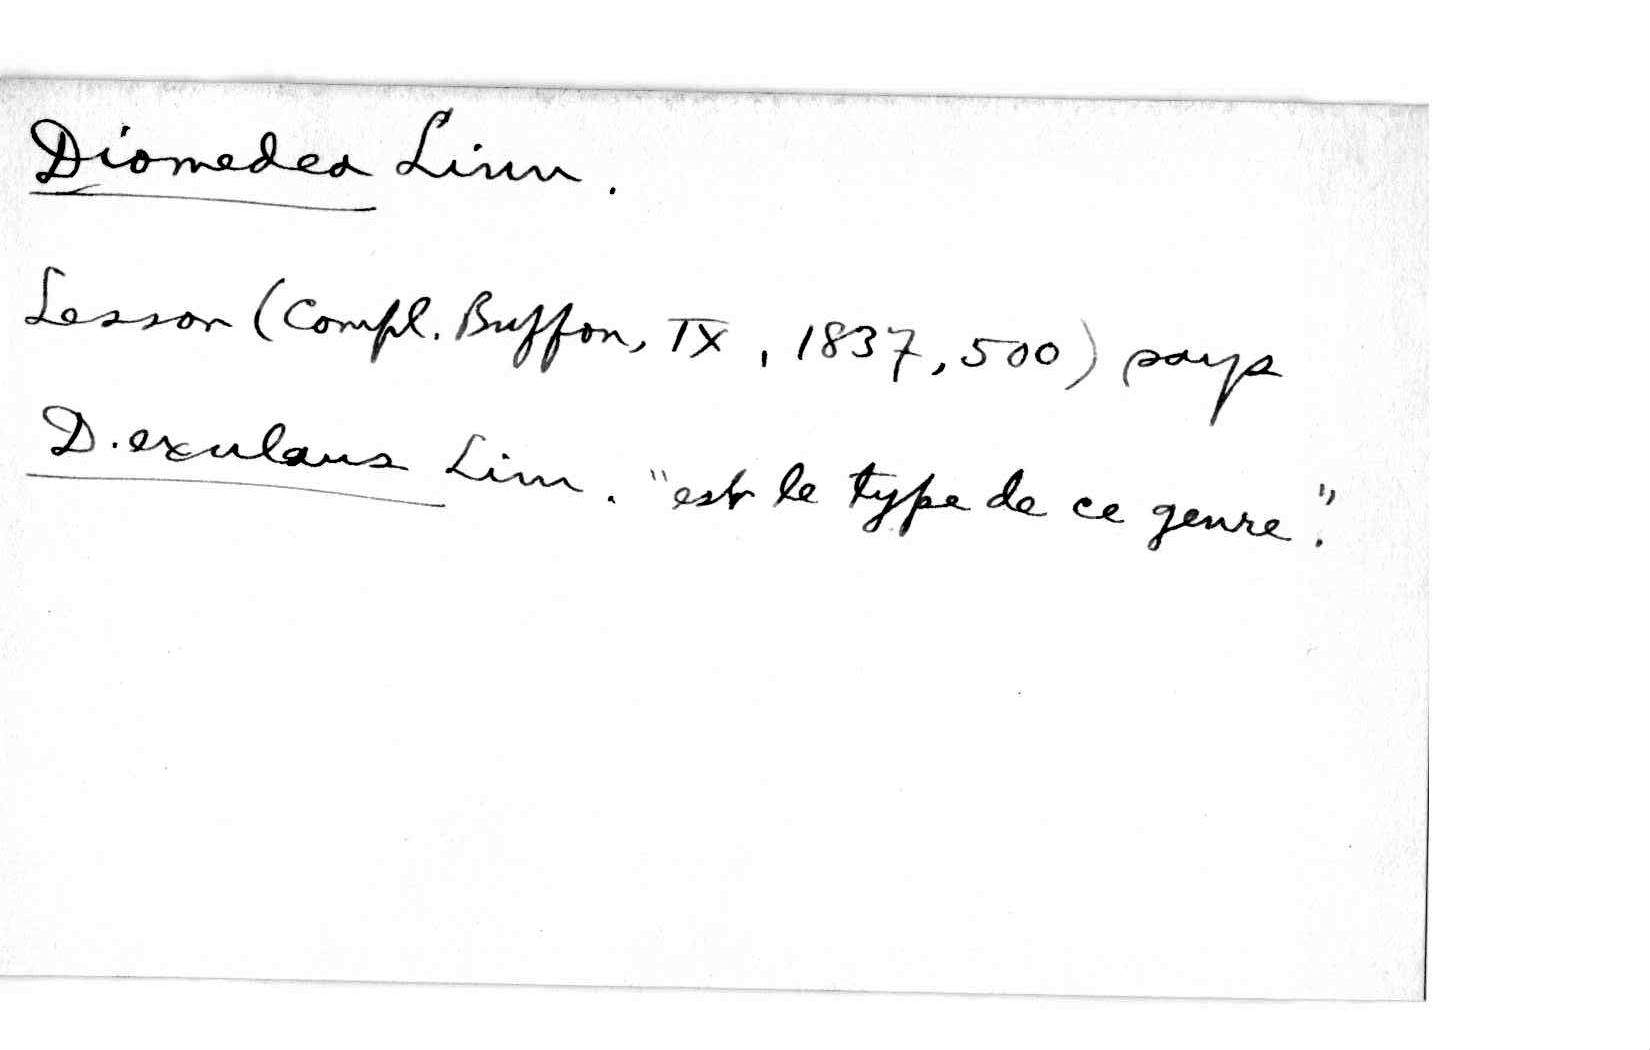 Diomedea Linn.
Lesson (Compl. Buffon, IX, 1837, 500) says
D. exulans Linn. "est le type de ce genre".